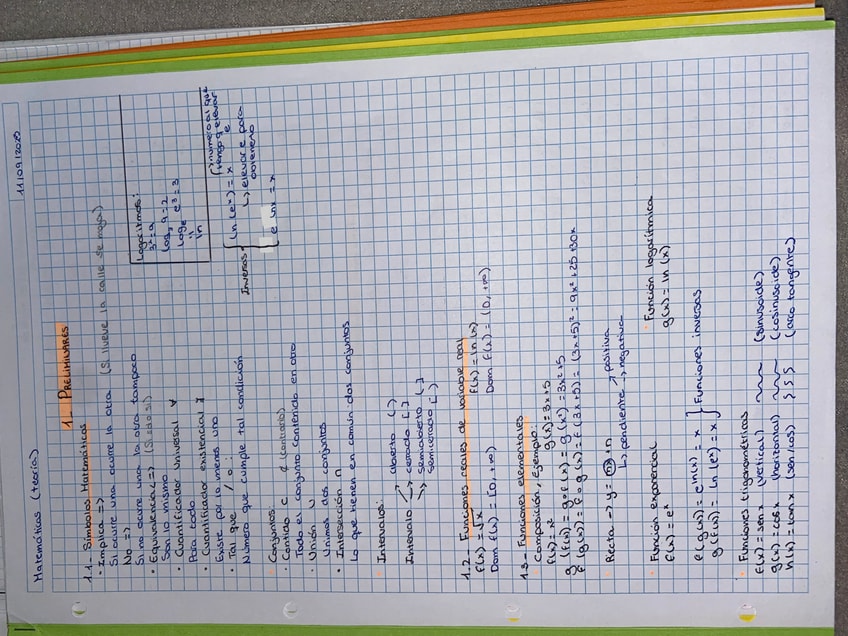 11/09/2025
Matemáticas (teoría)
1. PRELIMINARES
1.1- Símbolos Matemáticos
• Implica =>
Si ocurre una ocurre la otra (Si llueve la calle se moja)
No =>
Si no ocurre una la otra tampoco
• Equivalencia <=> (Si solo si)
Son lo mismo
• Cuantificador universal ∀
Para todo
• Cuantificador existencial ∃
Existe por lo menos uno
• Tal que / o :
Número que cumple tal condición
Logaritmos:
3²=9
log₃ 9=2
loge e³=3
ln
Inversas
ln (eˣ) = x
número al que tengo q elevar e
elevar e para obtenerlo
e ln x = x
• Conjuntos
• Contido ⊂ ⊄ (contrario)
Todo el conjunto contenido en otro
• Unión ∪
Unimos dos conjuntos
• Intersección ∩
Lo que tienen en común dos conjuntos
• Intervalos:
Intervalo → abierto ( )
→ cerrado [ ]
→ semiabierto ( ]
semicerado [ )
1.2- Funciones reales de variable real
f(x) = √x f(x) = ln(x)
Dom f(x) = [0, +∞) Dom f(x) = (0, +∞)
1.3- Funciones elementales
• Composición, Ejemplo:
f(x) = x² g(x) = 3x+5
g (f(x)) = g∘f(x) = g (x²) = 3x²+5
f (g(x)) = f∘g(x) = f (3x+5) = (3x+5)² = 9x²+25+30x
• Recta → y = mx + n
↳ pendiente → positiva
→ negativa
• Función exponencial • Función logarítmica
f(x) = eˣ g(x) = ln (x)
f (g(x)) = e ln(x) = x
g (f(x)) = ln (eˣ) = x } Funciones inversas
• Funciones trigonométricas
f(x) = sen x (vertical) (sinusoide)
g(x) = cos x (horizontal) (cosinusoide)
h(x) = tan x (sen/cos) (arco tangente)